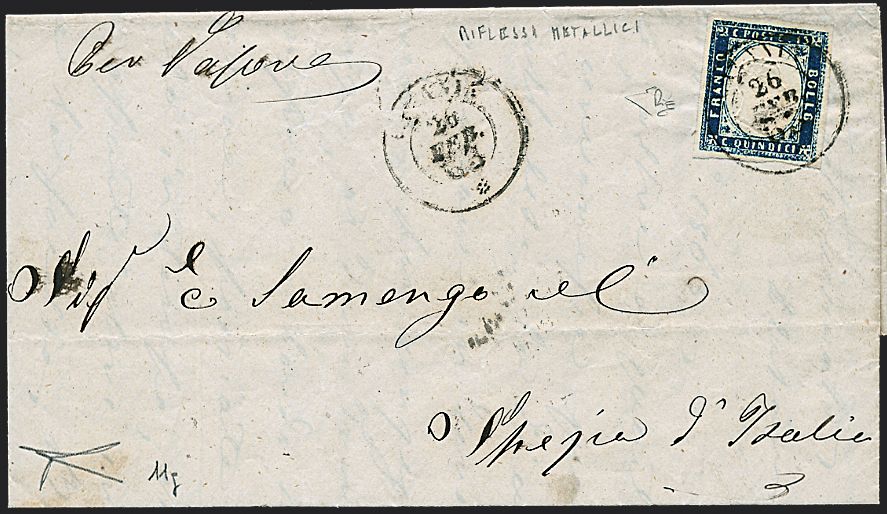 RIFLESSI METALLICI
Per Vapore
C. POSTE
FRANCO
BOLLO
C. QUINDICI
26
FEB
26
FEB.
Sig E Samengo e C
Spezia d'Italia
11g